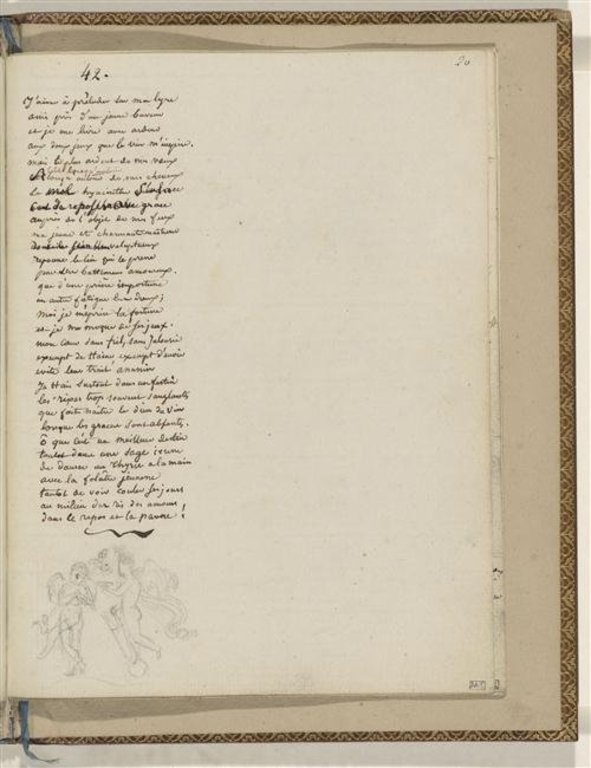 42.
20
J'aime à préluder sur ma lyre
assis près d'un jeune buveur
et je me livre avec ardeur
aux doux jeux que le vin m'inspire.
mais le plus ardent de mes vœux
autour de mes cheveux
Le mol hyacinthe
grace
auprès de l'objet de mes feux
ma jeune et charmante maitresse
voluptueux
repousse le lin qui le presse
par ses battemens amoureux.
que d'une prière importune
un autre fatigue les dieux;
moi je méprise la fortune
et je me moque de ses jeux.
mon cœur sans fiel, sans jalousie
exempt de haine exempt d'envie
évite leur trait assassin
Je hais surtout dans un festin
les repas trop souvent sanglants
que fait naitre le dieu du vin
lorsque les graces sont absentes.
ô que c'est un meilleur destin
tantot dans une sage ivresse
de danser au thyrse a la main
avec la folâtre jeunesse
tantot de voir couler ses jours
au milieu des ris des amours
dans le repos et la paresse!